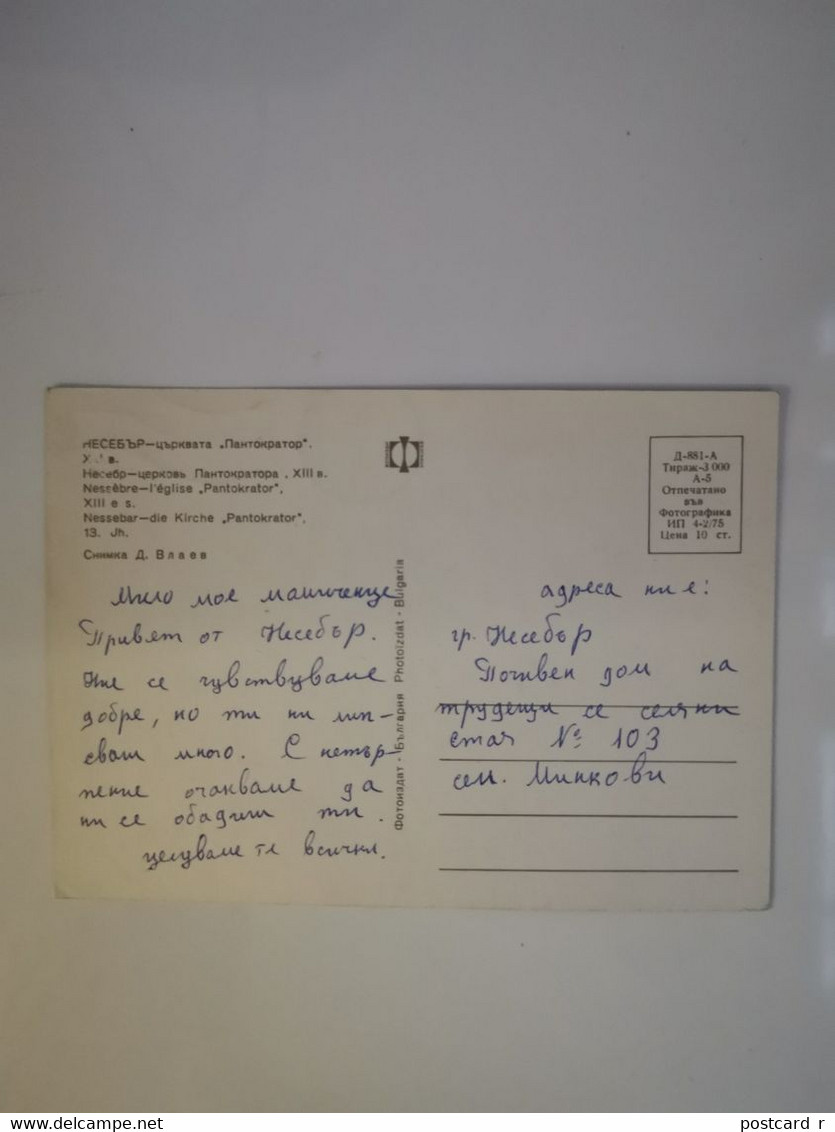 НЕСЕБЪР—църквата „Пантократор".
в.
Несебр—церковь Пантократора , XIII в.
Nessèbre—l'église „Pantokrator",
XIII e s.
Nessebar—die Kirche „Pantokrator",
13. Jh.
Снимка Д. Влаев
Мило мое
Привет от Несебър.
Ние се чувствуваме
добре, но ти ни лип-
сваш много. С нетър-
пение очакваме да
ни се обадиш ти.
целуваме те всички.
Фотоиздат - България Photoizdat - Bulgaria
Д-881-А
Тираж-3 000
А-5
Отпечатано
във
Фотографика
ИП 4-2/75
Цена 10 ст.
адреса ни е:
гр. Несебър
Почивен дом на
трудещи се селяни
стая № 103
сем. Минкови
www.delcampe.net
postcard_r